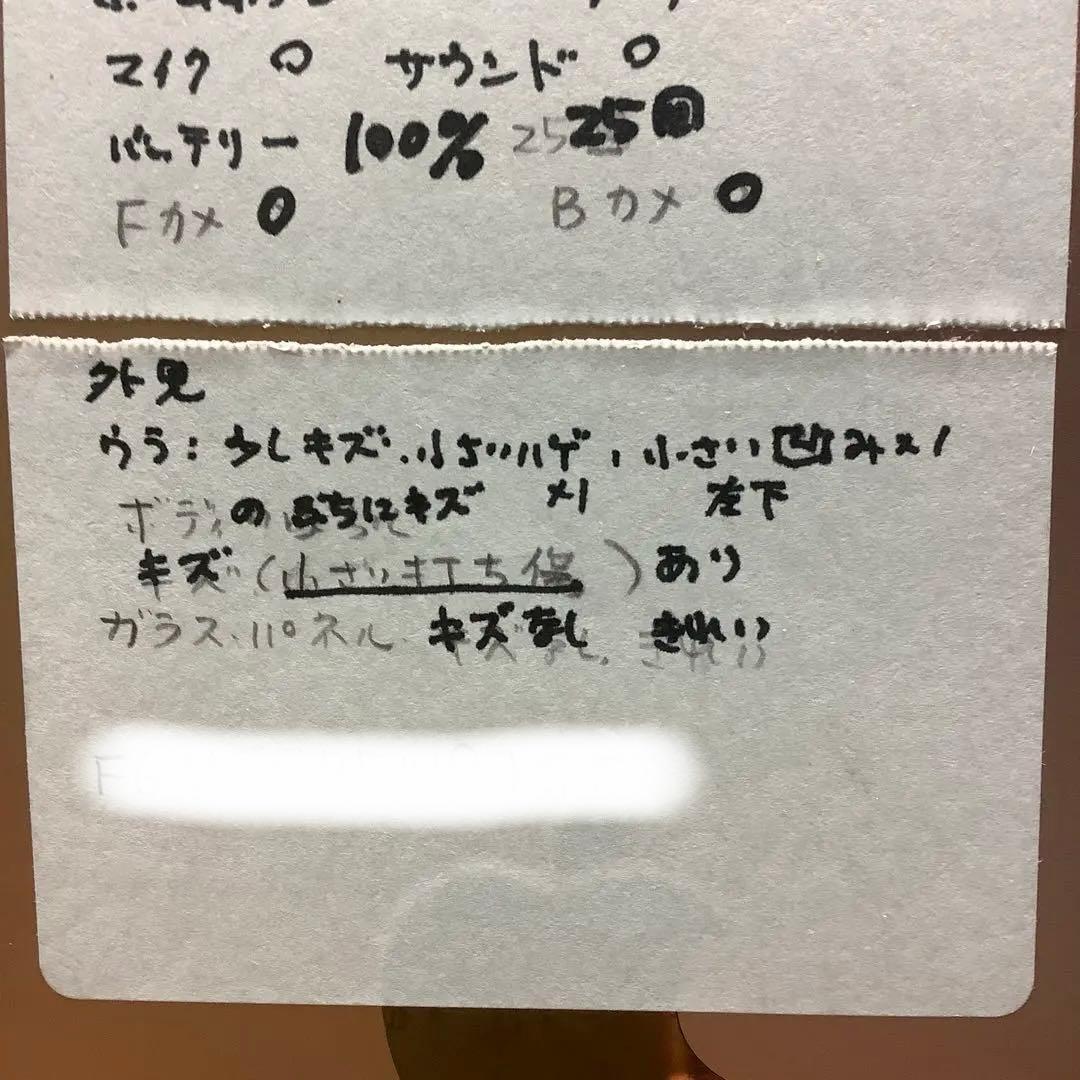 マイク ○ サウンド ○
バッテリー 100% 25 25回
Fカメ ○ Bカメ ○
外見
ウラ:少しキズ.小さいハゲ,小さい凹み×1
ボディのふちにキズ ×1 左下
キズ(小さい打ち傷)あり
ガラス.パネル.キズなし きれい